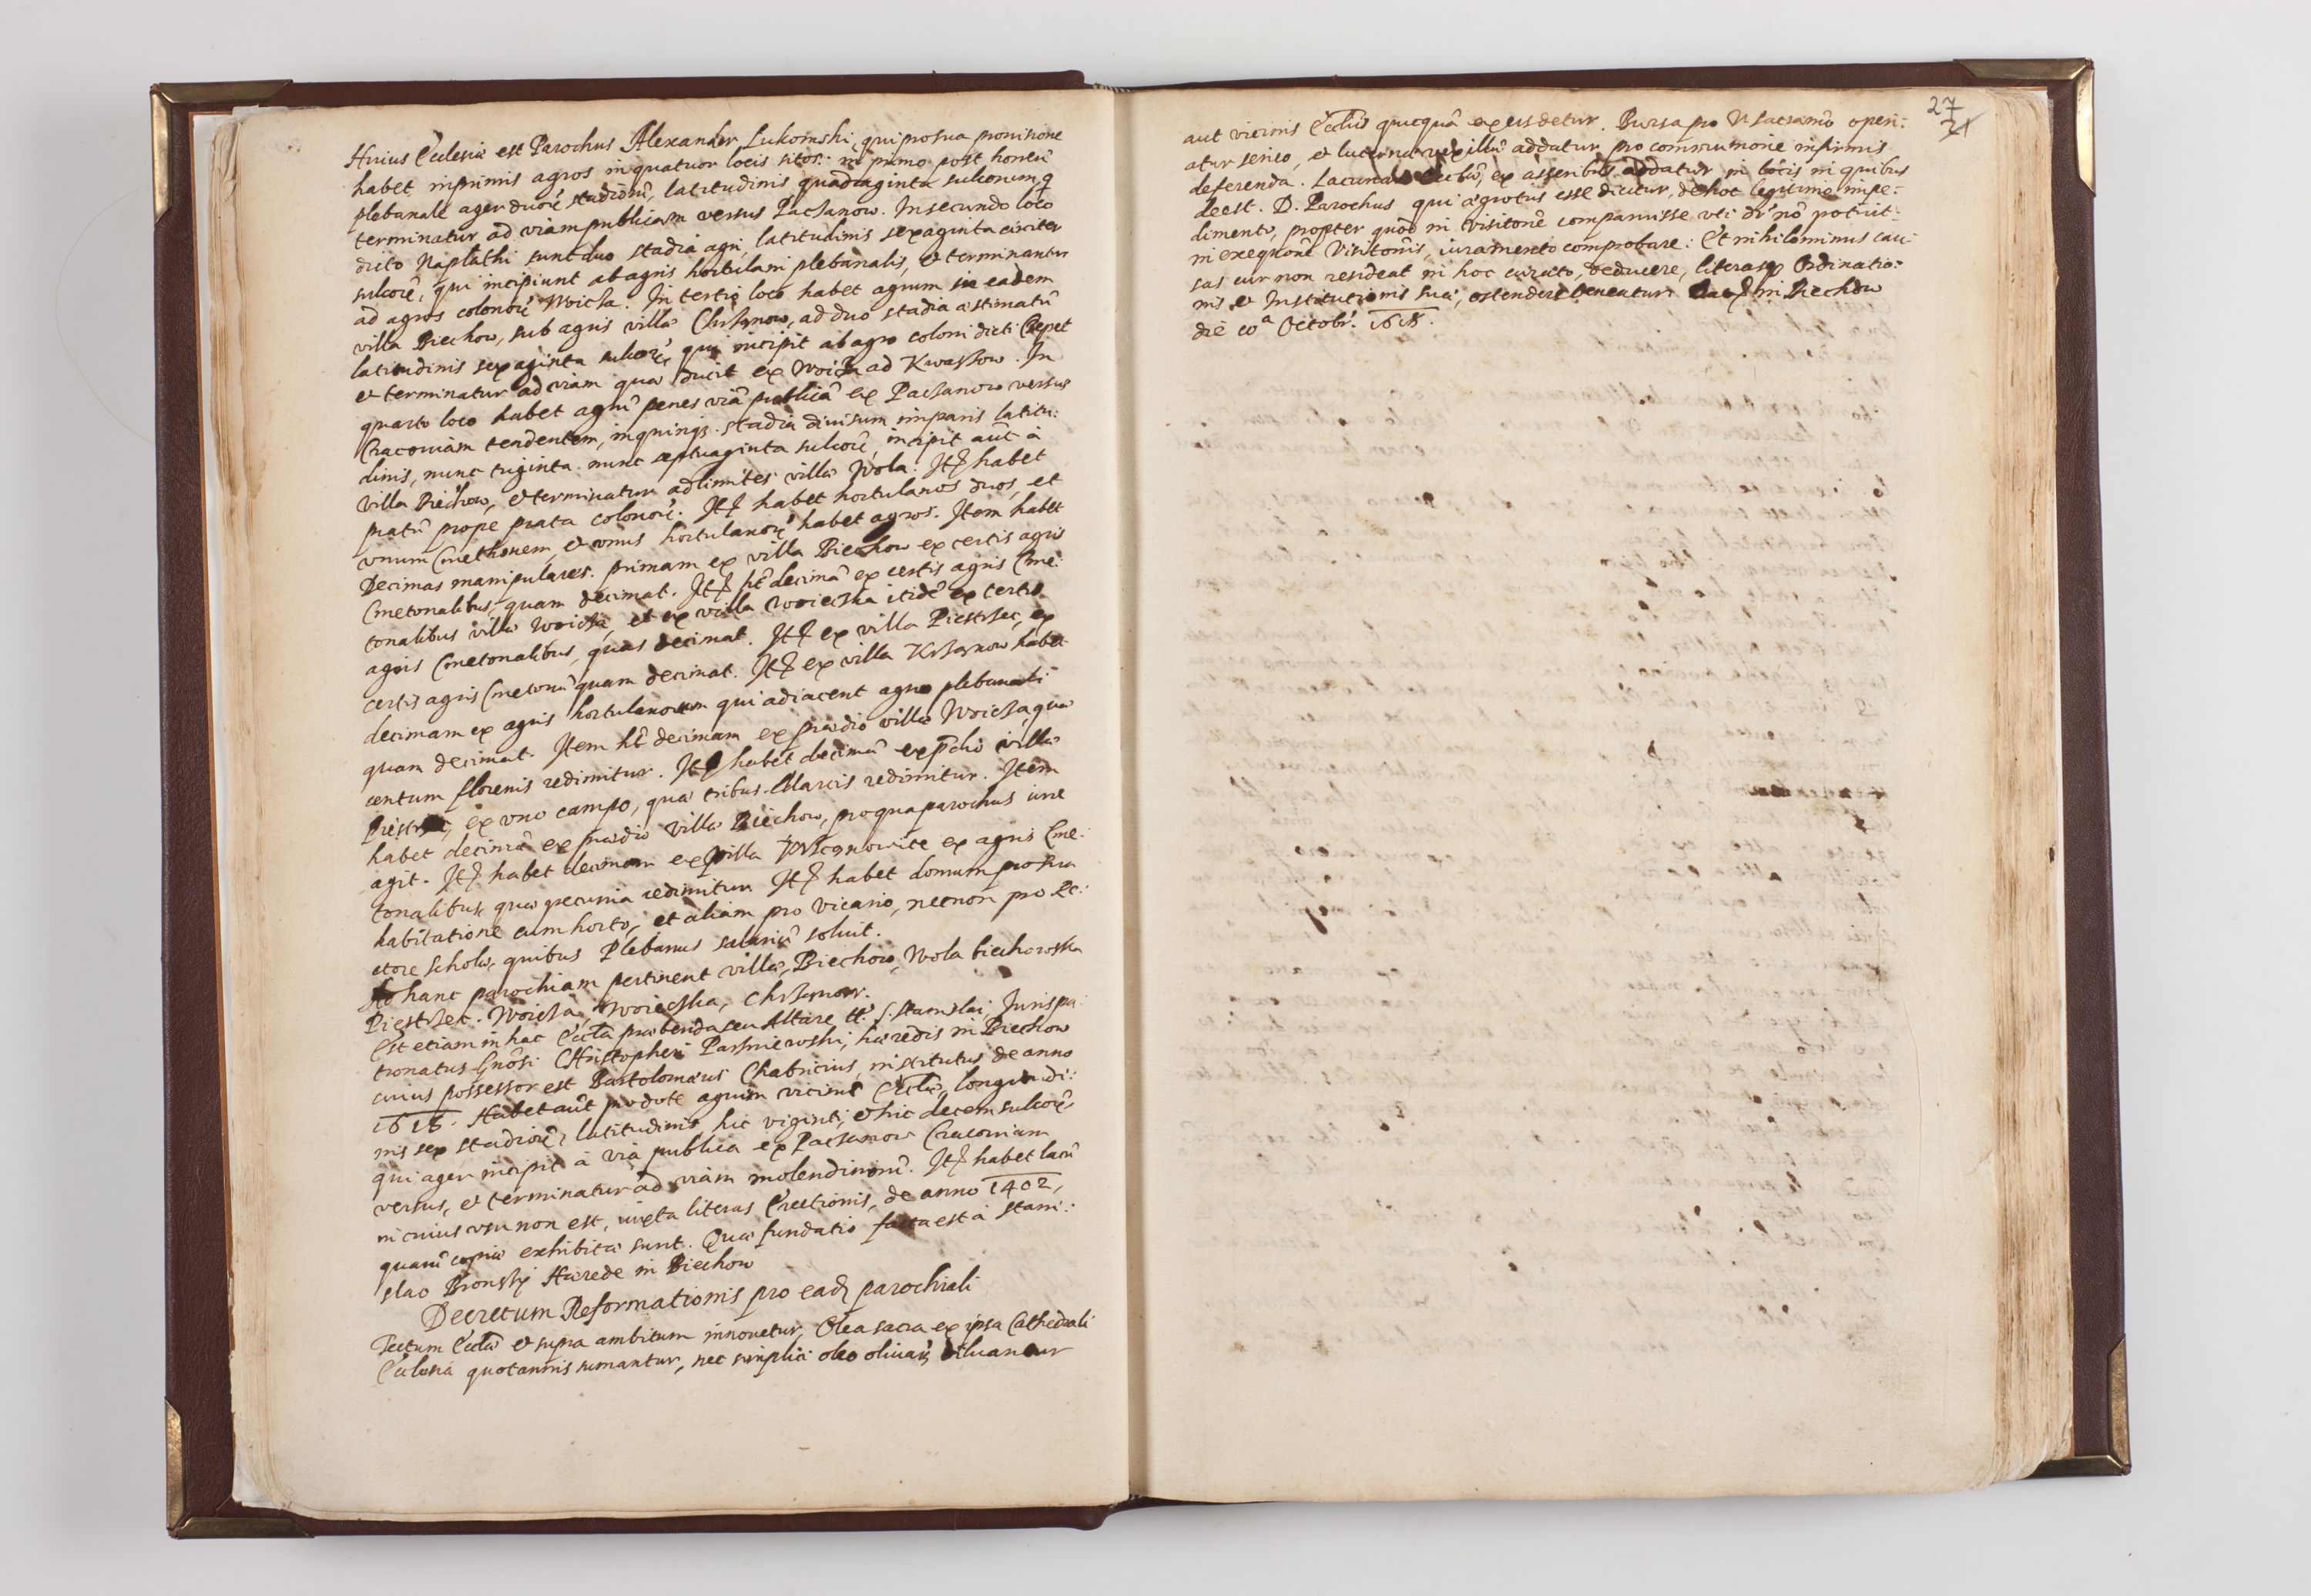 Huius Ecclesiæ est Parochus Alexander Lukomski, qui pro sua prouisione
habet inprimis agros in quatuor locis sitos: in primo post hortũ
plebanalẽ ager duorũ stadiorũ, latitudinis quadraginta sulcorum, q̃
terminatur ad viam publicam versus Pacżanow. In secundo loco
dicto Naplathi sunt duo stadia agri, latitudinis sexaginta circiter
sulcorũ, qui incipiunt ab agris hortulani plebanalis, et terminantur
ad agros colonorũ Woicża. In tertio loco habet agrum in eadem
villa Biechow, sub agris villæ Chrżąnow, ad duo stadia æstimatũ
latitudinis sexaginta sulcorũ, qui incipit ab agro coloni dicti Czepet
et terminatur ad viam quæ ducit ex Woicża ad Kwassow. In
quarto loco habet agrũ penes viã publicã ex Pacżanow versus
Cracouiam tendentem, in quinqʒ stadia diuisum imparis latitu:
dinis, nunc triginta nunc septuaginta sulcorũ, incipit aũt à
villa Biechow, et terminatur ad limites villæ Wola. Itȝ habet
pratũ prope prata colonorũ. Itȝ habet hortulanos duos, et
vnum Cmethonem, et vnus hortulanorũ habet agros. Item habet
Decimas manipulares. primam ex villa Biechow ex certis agris
Cmetonalibus, quam decimat. Itȝ ht̃ decimã ex certis agris Cme:
tonalibus villæ Woicża, et ex villa Woiecżka itidẽ ex certis
agris Cmetonalibus, quas decimat. Itȝ ex villa Piestrżec, ex
certis agris Cmetonũ quam decimat. Itȝ ex villa Krżąnow habet
decimam ex agris hortulanorum qui adiacent agro plebanali
quam decimat. Item ht̃ decimam ex prædio villæ Woicża, quæ
centum florenis redimitur. Itȝ habet decimã ex p̃dio villæ
ex vno campo, quæ tribus Marcis redimitur. Item
habet decimã ex prædio villæ Biechow, pro qua parochus iure
agit. Itȝ habet decimam ex villa ex agris Cme:
tonalibus, quæ pecunia redimitur. Itȝ habet domum pro sua
habitatione cum horto, et aliam pro vicario, necnon pro Re:
ctore Scholæ, quibus Plebanus salariũ soluit.
Ad hanc parochiam pertinent villæ, Biechow, Wola biechowska
Piestrżec. Woicża, Woiecżka, Chrżąnow.
Est etiam in hac Eccla præbenda seu Altare tt: S. Stanislai, Iurispa:
tronatus Gnosi Christopheri Parżniewski, hæredis in Biechow
cuius possessor est Bartolomæus Chabricius, institutus de anno
1615. Habet aũt pro dote agrum vicinũ Ecclæ, longitudi:
nis sex stadiorũ, latitudinis hic viginti, et hic decem sulcorũ,
qui ager incipit à via publica ex Pacżanow Cracouiam
versus, et terminatur ad viam molendinorũ. Itȝ habet lacũ
in cuius vsu non est, iuxta literas Erectionis, de anno 1402,
quarũ copiæ exhibitæ sunt. Quæ fundatio facta est à Stani:
slao Bronsky Hærede in Biechow
Decretum Reformationis pro eadȝ parochiali
Tectum Ecclæ et supra ambitum innouetur, Olea sacra ex ipsa Cathedrali
Ecclesia quotannis sumantur, nec simplici oleo diluantur
27
21
aut vicinis Ecclijs quicquã ex eis detur. Bursa pro Vn sacramẽ operi:
atur serico, et lucerna vexillũ addatur pro communione infirmis
deferenda. Lacunar ex asseribus addatur in locis in quibus
deest. D. Parochus qui ægrotus esse dicitur, de hoc legitimo impe:
dimento, propter quod in visitonẽ comparuisse vti dr̃ nõ potuit
in exeqnõne Visitonis, iuramento comprobare: Et nihilominus cau:
sas cur non resideat in hoc curato, deducere, literasqʒ Ordinatio:
nis et Institutionis suæ, ostendere teneatur. Datȝ in Biechow
die 10ª Octobr: 1618.